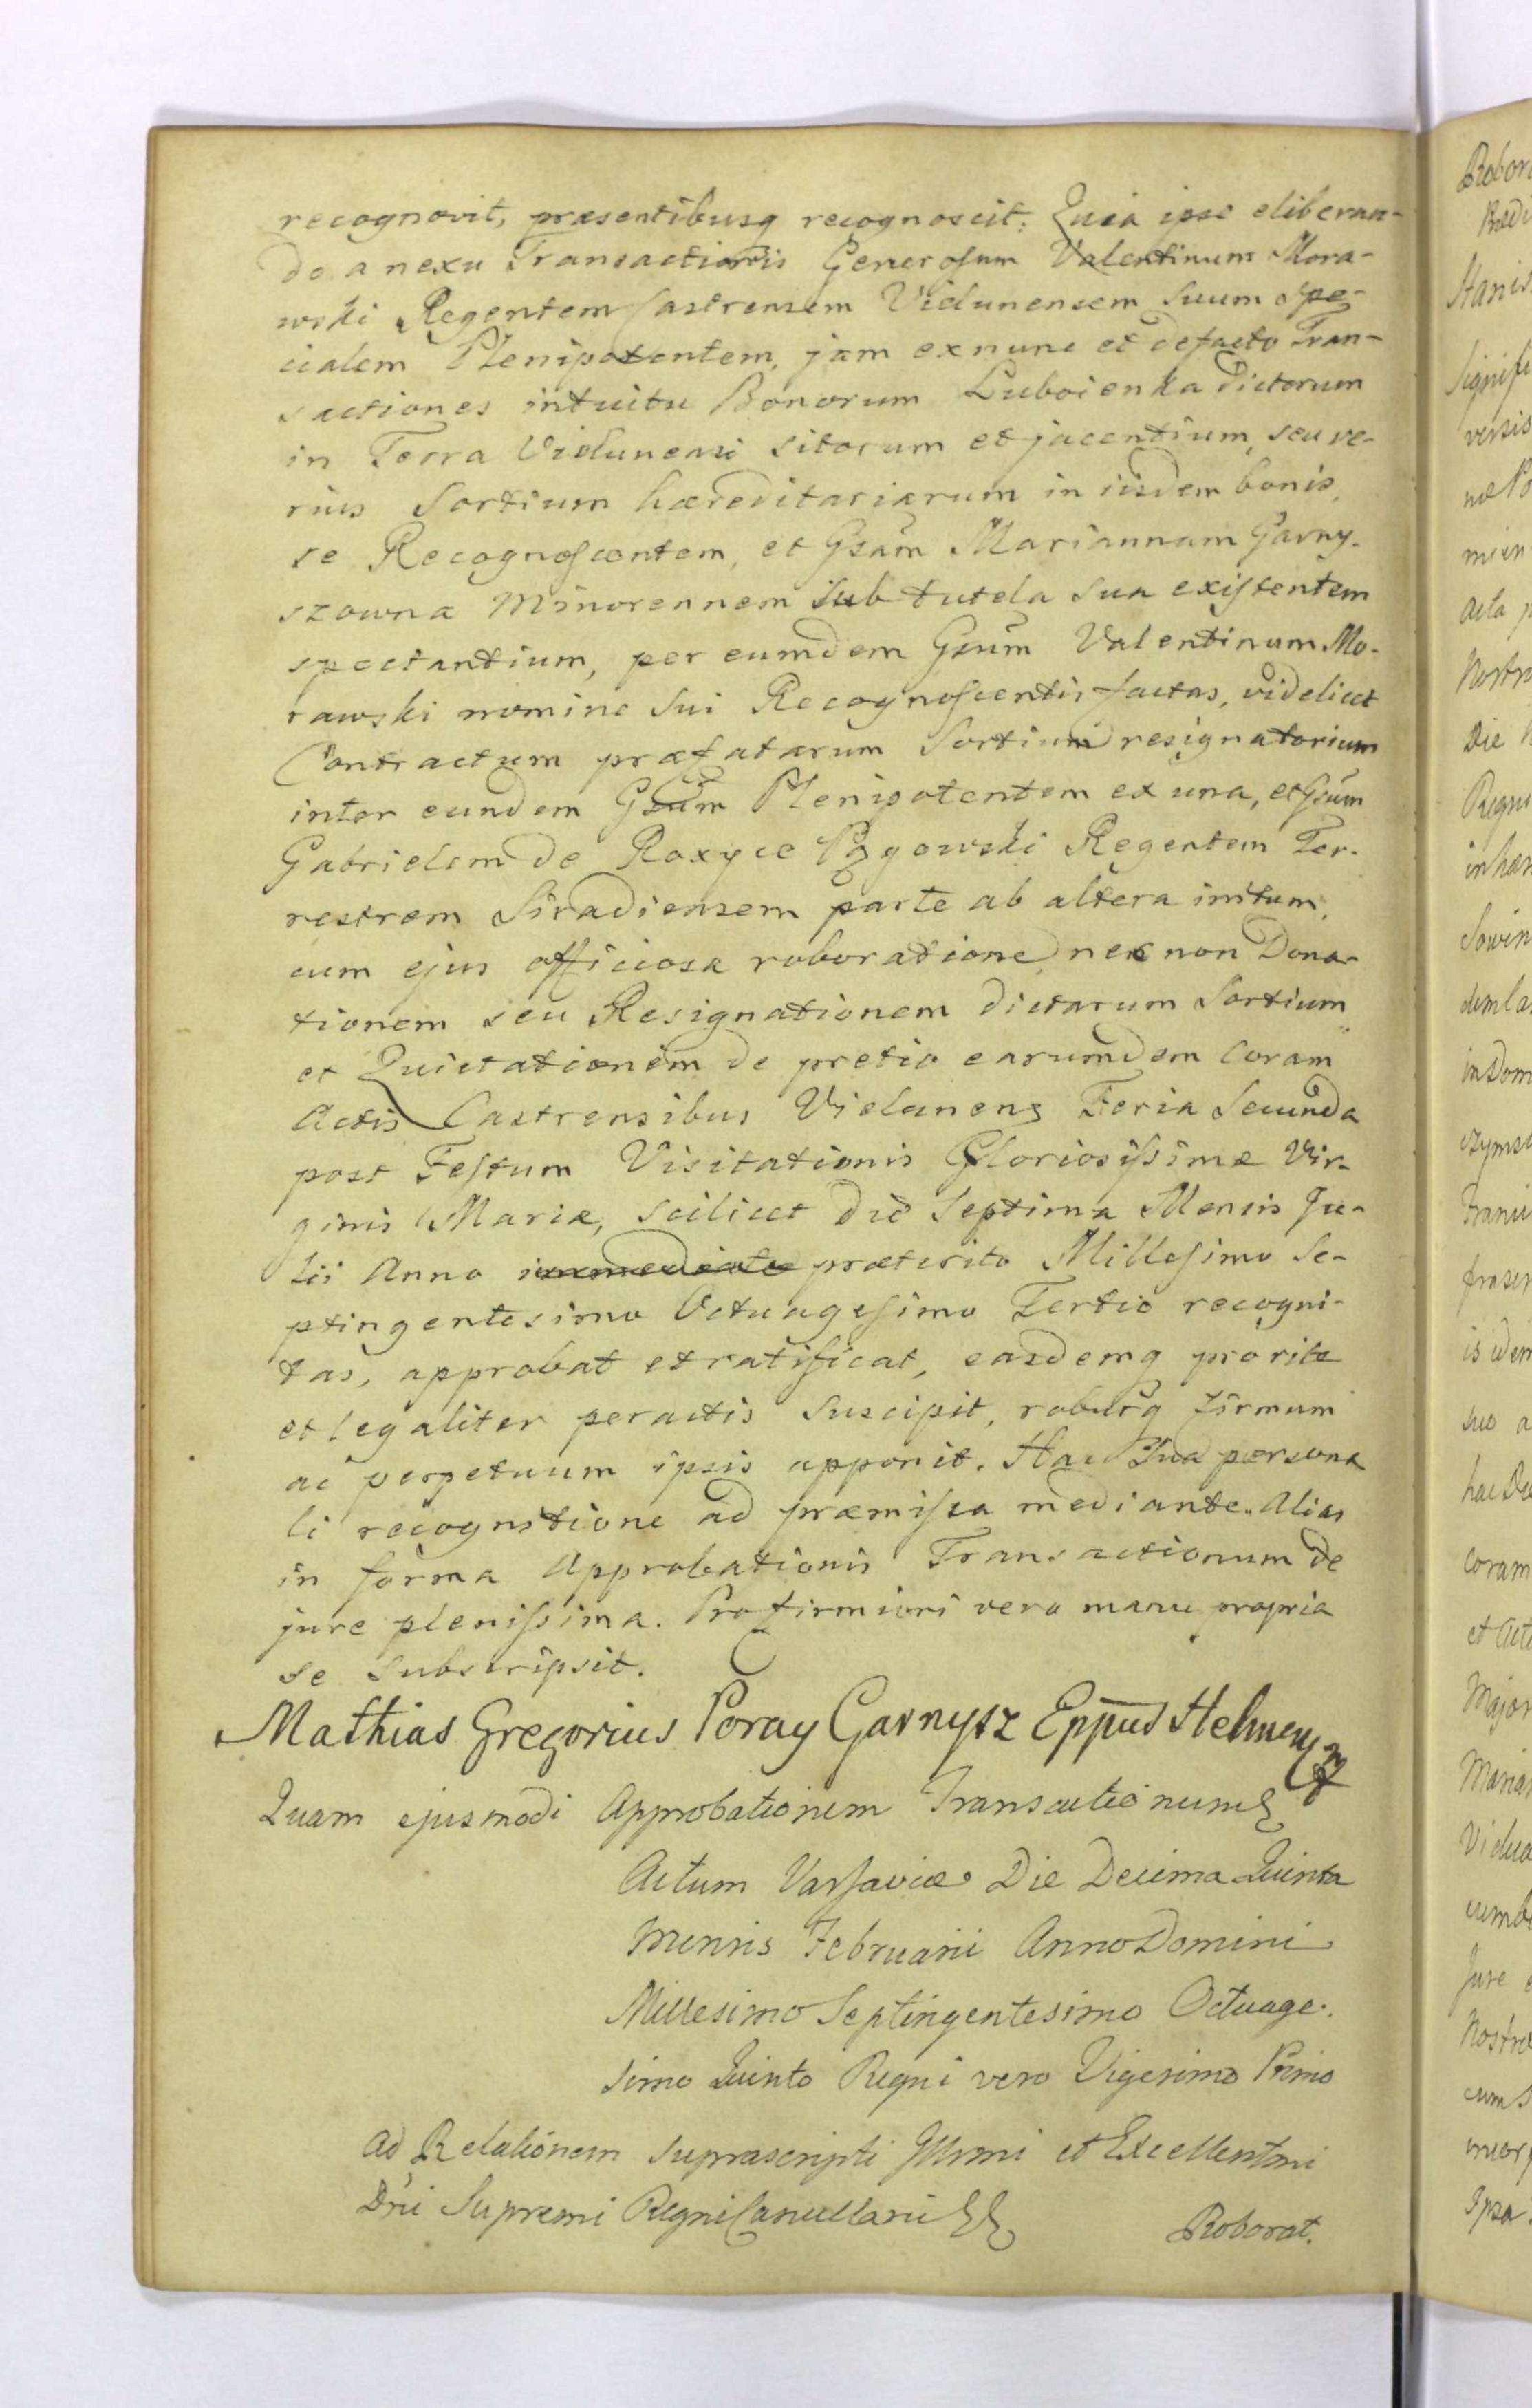 recognovit, præsentibusq recognoscit: Quia ipse eliberan-
do a nexu Transactionis Generosum Valentinum Mora-
wski Regentem Castrensem Vielunensem Suum Spe-
cialem Plenipotentem, jam exnunc et defacto Tran-
sactiones intuitu Bonorum Luboienka dictorum
in Terra Vielunensi sitorum et jacentium, seu ve-
rius Sortium hæreditariarum in iisdem bonis,
se Recognoscentem, et Gsam Mariannam Garny-
szowna Minorennem sub tutela sua existentem
spectantium, per eumdem Gsum Valentinum Mo-
rawski nomine Sui Recognoscentis factas, videlicet
Contractum præfatarum Sortium resignatorium
inter eundem Gsum Plenipotentem ex una, et Gsum
Gabrielem de Roxyce Pągowski Regentem Ter-
restrem Siradiensem parte ab altera initum,
cum ejus officiosa roboratione, nec non Dona-
tionem seu Resignationem dictarum Sortium
et Quietationem de pretio earumdem Coram
Actis Castrensibus Vielunens Feria Secunda
post Festum Visitationis Gloriosissimæ Vir-
ginis Mariæ, scilicet die Septima Mensis Ju-
lii Anno immediate præterito Millesimo Se-
ptingentesimo Octuagesimo Tertio recogni-
tas, approbat et ratificat, easdemq pro rite
et legaliter peractis suscipit, roburq firmum
ac perpetuum ipsis apponit. Hac Sua persona
li recognitione ad præmissa mediante. Alias
in forma Approbationis Transactionum de
jure plenissima. Pro firmiori vero manu propria
se subscripsit.
Mathias Gregorius Poray Garnysz Eppus Helmen
Quam ejusmodi Approbationem Transactionum
Actum Varsaviæ Die Decima Quinta
Mensis Februarii Anno Domini
Millesimo Septingentesimo Octuage-
simo Quinto Regni vero Vigesimo Primo
Ad Relationem suprascripti Illmi et Excellentmi
Dni Supremi Regni Cancellarii
Roborat.